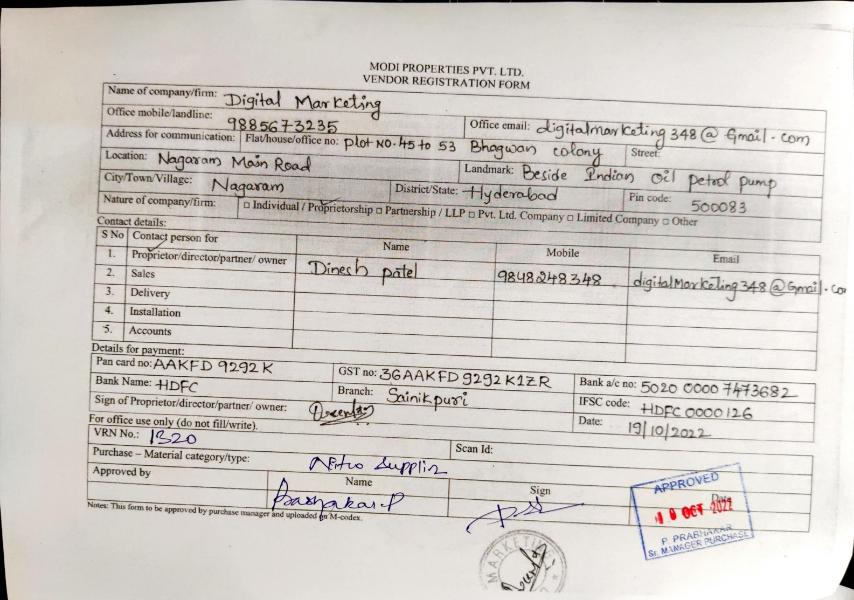 MODI PROPERTIES PVT. LTD.
VENDOR REGISTRATION FORM
Name of company/firm: Digital Marketing
Office mobile/landline: 9885673235 Office email: digitalmarketing348@Gmail.com
Address for communication: Flat/house/office no: plot NO. 45 to 53 Bhagwan colony Street:
Location: Nagaram Main Road Landmark: Beside Indian oil petrol pump
City/Town/Village: Nagaram District/State: Hyderabad Pin code: 500083
Nature of company/firm: □ Individual / Proprietorship □ Partnership / LLP □ Pvt. Ltd. Company □ Limited Company □ Other
Contact details:
S No Contact person for Name Mobile Email
1. Proprietor/director/partner/ owner Dinesh patel 9848248348 digitalMarketing348@Gmail.co
2. Sales
3. Delivery
4. Installation
5. Accounts
Details for payment:
Pan card no: AAKFD 9292K GST no: 36AAKFD9292K1ZR Bank a/c no: 5020 0000 7473682
Bank Name: HDFC Branch: Sainikpuri IFSC code: HDFC0000126
Sign of Proprietor/director/partner/ owner: Date: 19/10/2022
For office use only (do not fill/write).
VRN No.: 1320 Scan Id:
Purchase – Material category/type:
Name Sign Date
Approved by Prabhakar P
Notes: This form to be approved by purchase manager and uploaded on M-codex.
APPROVED
19 OCT 2022
P. PRABHAKAR
Sr. MANAGER PURCHASE
MARKETING